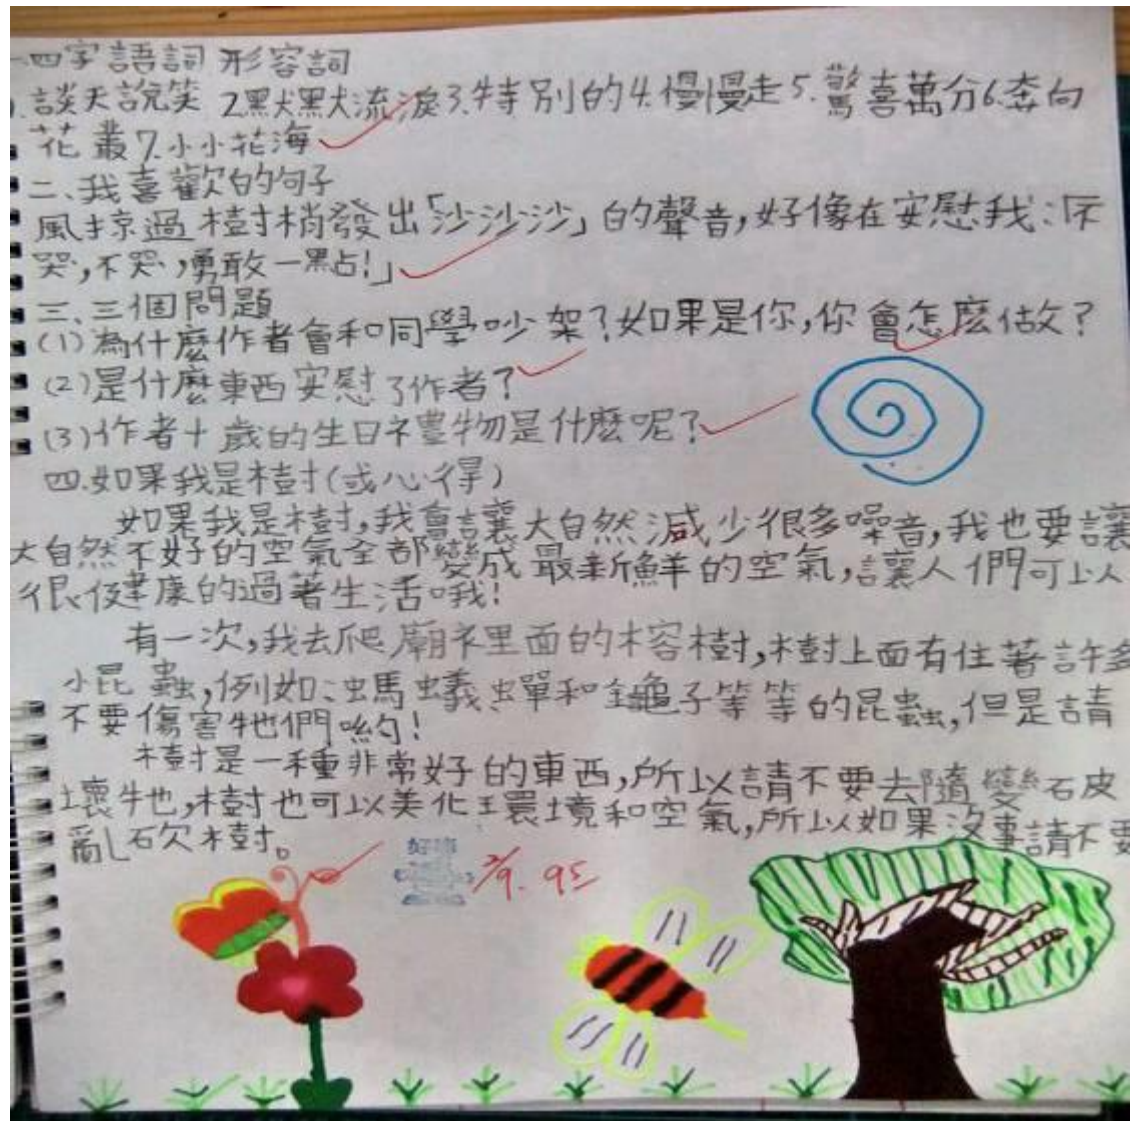 一四字語詞 形容詞
1.談天說笑 2.默默流淚3.特別的4.慢慢走5.驚喜萬分6.奔向
花叢7.小小花海
二、我喜歡的句子
風掠過樹梢發出「沙沙沙」的聲音,好像在安慰我:「不
哭,不哭,勇敢一點!」
三、三個問題
(1)為什麼作者會和同學吵架?如果是你,你會怎麼做?
(2)是什麼東西安慰了作者?
(3)作者十歲的生日禮物是什麼呢?
四.如果我是樹(或心得)
如果我是樹,我會讓大自然減少很多噪音,我也要讓
大自然不好的空氣全部變成最新鮮的空氣,讓人們可以
很健康的過著生活哦!
有一次,我去爬廟裡面的榕樹,樹上面有住著許多
小昆蟲,例如:螞蟻、蟬和金龜子等等的昆蟲,但是請
不要傷害牠們喲!
樹是一種非常好的東西,所以請不要去隨變破
壞牠,樹也可以美化環境和空氣,所以如果沒事請不要
亂砍樹。
2/9. 95